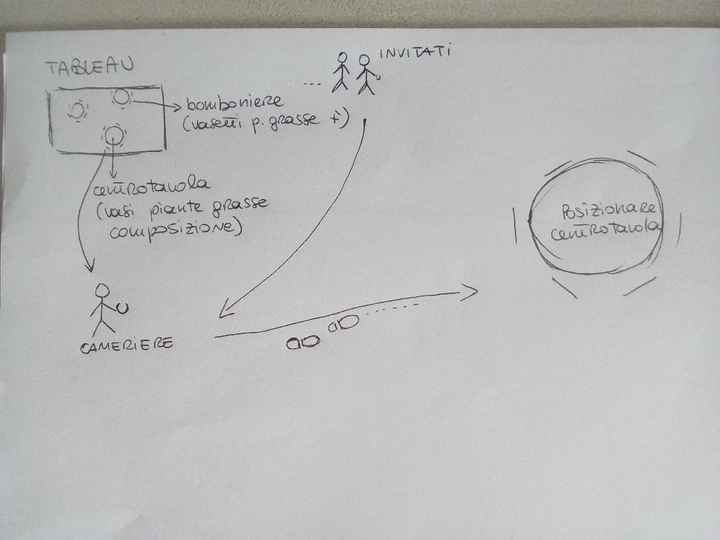 TABLEAU
INVITATI
bomboniere
(vasetti p. grasse +)
centrotavola
(vasi piante grasse
composizione)
Posizionare
centrotavola
CAMERIERE